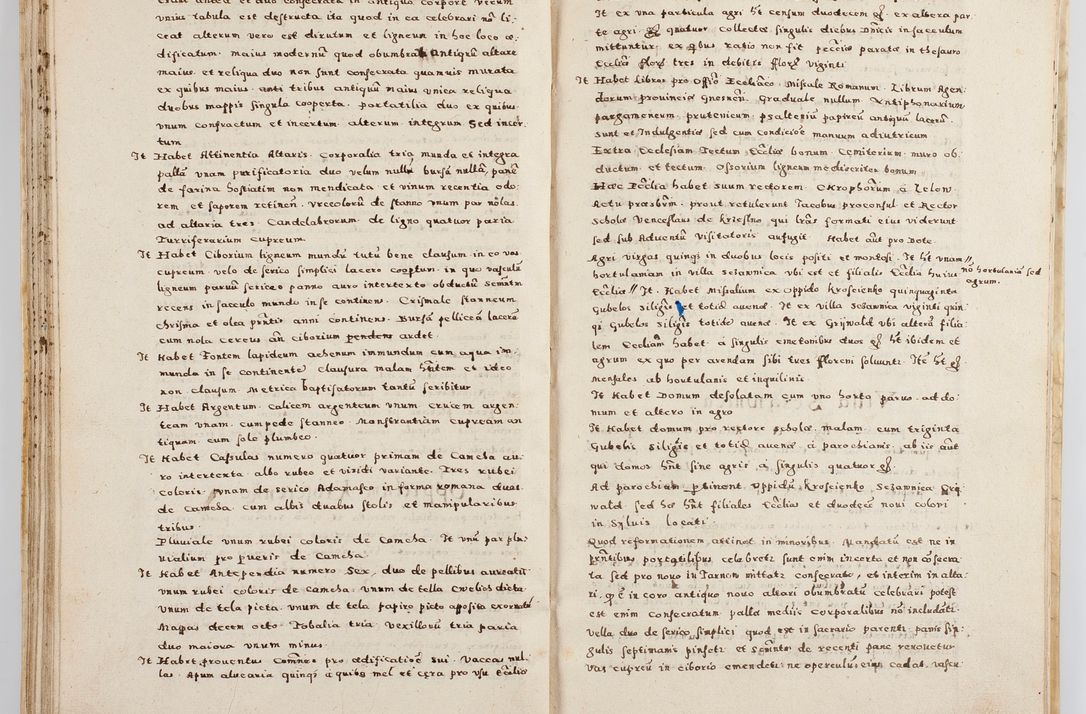 vnius tabula est destructa ita quod in ea celebrari nō li:
ceat alterum vero est dirutum et ligneum in hoc loco æ:
dificatum. maius modernū quod obumbrat Antiquū altare
maius. et reliqua duo non sunt consecrata quamuis murata
ex quibus maius. anti tribus antiquū maius vnica reliqua
duobus mappis singula cooperta. portatilia duo ex quibus
vnum confractum et incertum. alterum integrum sed incer:
tum
It Habet Attinentia Altaris. Corporalia tria munda et integra
pallā vnam purificatoria duo velum nullū bursā nullā, panē
de farina hostiatim non mendicata et vinum recentia odo:
rem et saporem retinēt. vrceolorū de stanno vnum par nōlas
ad altaria tres. Candelabrorum de ligno quatuor paria
Turriferarium cupreum.
It Habet Ciborium ligneum mundū tutū bene clausum. in eo vas
cupreum velo de serico simplici lacero coopturi. in quo vasculū
ligneum paruū serico panno auro intertexto obductū Semītm
recens in sacculo mundo in se continens. Crismale stanneum
chrisma et olea prñtis anni continens. Bursā pelliceā lacerā
cum nola cereus añ ciborium pendens ardet.
It Habet Fontem lapideum aehenum inmundum cum aqua im:
munda in se continente clausura malam hñtem et ideo
non clausum. Metrica baptisatorum tantū scribitur
It Habet Argentum. Calicem argenteum vnum Crucem argen:
team vnam. cum pede stanneo. Monstrantiam cupream an
tiquam cum sole plumbeo.
It Habet Casulas numero quatuor primam de Camcha au:
ro intertexta albo rubeo et viridi variante. Tres rubei
coloris. vnam de serico Adamasco in forma romana duas
de Camcha. cum albis duabus stolis et manipularibus
tribus.
Pluuiale vnum rubei coloris de Camcha. It vnū par plu:
uialium pro pueris de Camcha.
It Habet Antependia numero Sex, duo de pellibus aureatis
vnum rubei coloris de camcha. vnum de tella
vnum de tela picta. vnum de tela papiro picto apposita exornatū
Mappas decem octo. Tobalia tria. vexillorū tria paria
duo maiora vnum minus.
It Habet prouentus Comēnes pro ædificatioē sui. Vaccas nul
las. Apum aluearia quinq; a quibus mel et cera pro vsu Ecclīæ

It ex vna particula agri ht censum duodecem gr. ex altera par
te agri gr quatuor collectæ singulis diebus Dnīcis in sacculum
mittuntur, ex qbus ratio non fit pecciæ paratæ in thesauro
Ecclīæ flor tres in debitis flor viginti
It Habet Libros pro Offīo Eccliāco. Missale Romanum. Librum Agen:
darum prouinciæ gnesneñ. Graduale nullum Antiphonarium
pargameneum, prutenicum. psalteriū papireū antiquū lacerū.
sunt et Indulgentiæ sed cum condicioē manuum adiutricum
Extra Ecclesiam Tectum Ecclīæ bonum Cemiterium. muro ob:
ductum et tectum. Ossorium ligneum mediocriter bonum
Hæc Ecclīa habet suum rectorem Chrophorum a Zelow
Actu præsbrm. prout retulerunt Jacobus proconsul et Rector
Scholæ Venceslaus de Kriesino qui lras formati eius viderunt
sed sub Aduentū visitatoris aufugit. Habet aūt pro Dote.
Agri virgas quinq; in duobus locis positi et montosi. It ht vnam //
hortulaniam in villa Sezawnica vbi est et filialis Ecclīa huius
nō hortulania sed
agrum.
Ecclīæ // It. Habet Missalium ex oppido Kroscienko quinquaginta
Gubelos siliginis et totidē auenæ. It ex villa Sezawnica viginti quin
qz Gubelos siligīs totidē auenæ. It ex Grijwald vbi alterā filia:
lem Eccliam habet. a singulis cmetonibus duos gr ht ibidem et
agrum ex quo per arendam sibi tres floreni soluunt. Itē ht gr
mensales ab hortulanis et inquilinis.
It Habet Domum desolatam cum vno horto paruo. ad do:
mum et altero in agro
It Habet domum pro rectore scholæ malam. cum triginta
Gubelis siligīs et totidē auenæ a parochianis. ab iis aūt
qui domos hñt sine agris a singulis quatuor gr.
Ad parochium ptinent. Oppidū Kroscienko Sezawnica Grij
wald sed hæ hñt filiales Ecclīas et duodecē noui coloni
in Syluis locati.
Quod reformationem attinet in minoribus. Mandatū est ne in
prñtibus portatilibus celebretr sunt enim incerta et non cōsecra
ta sed pro nouo in Tarnow mittatr consecrato, et interim in alta:
ri q̄ ē in coro antiquo nouo altari obumbratū celebrari potest
est enim consecratum pallæ mediis corporalibus nō includātr.
vella duo de serico simplici quod est in sacrario parentr. panis sin:
gulis septimanis pinsetr et Scñtm de recenti pane renouetur
vas cupreū in ciborio emendetr ne operculus eius cadat. vascu